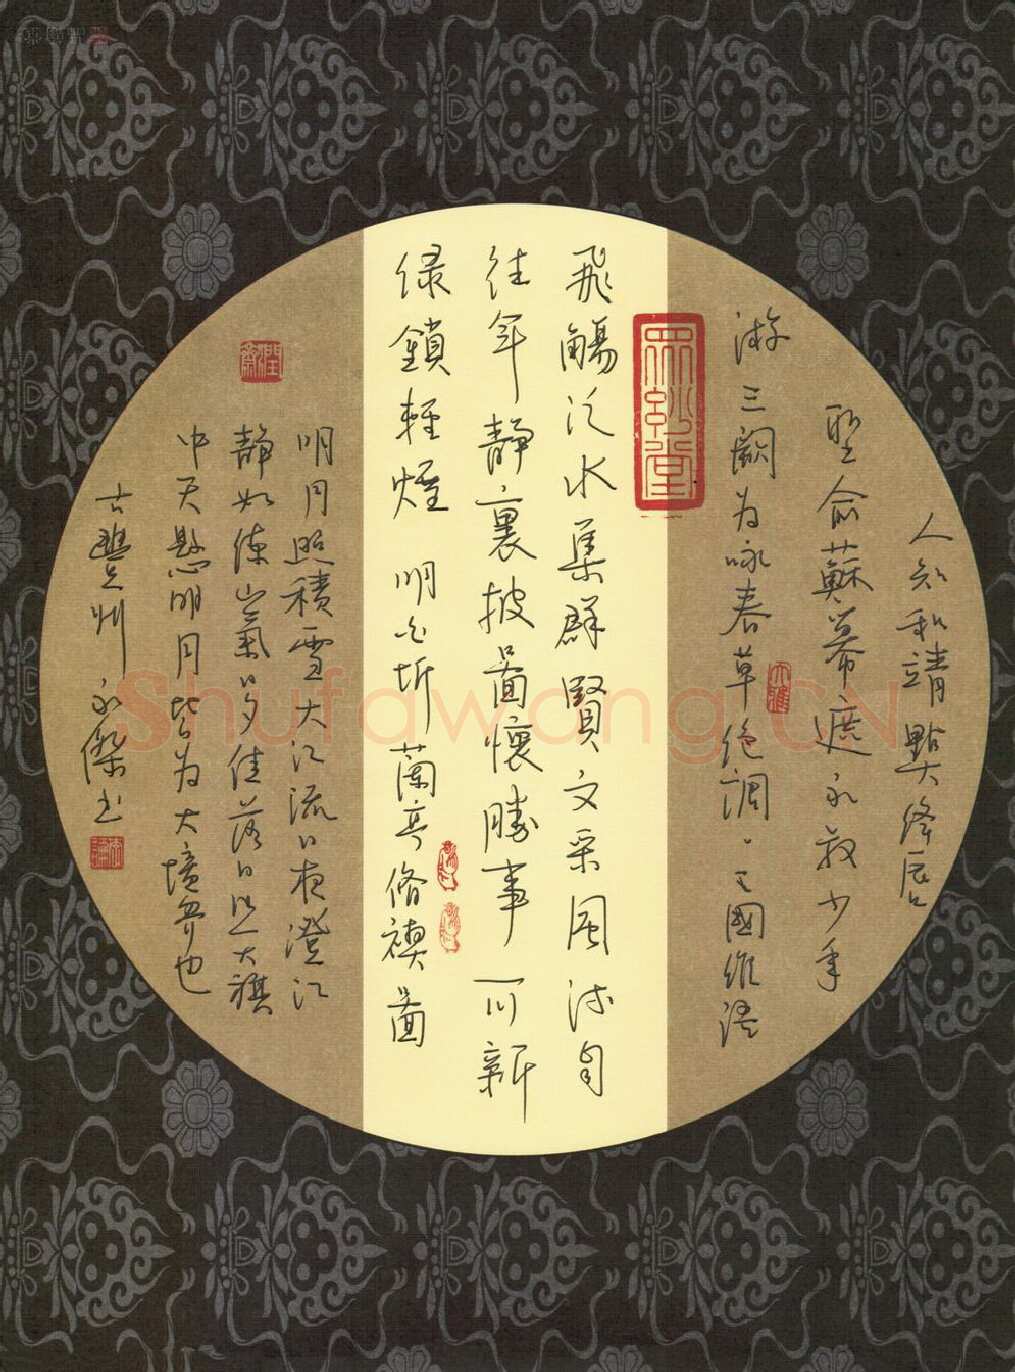 人知和靖點絳唇
聖俞蘇幕遮永叔少年
游三闋為咏春草絕調、王國維語
眾妙堂
飛觴泛水集群賢文采風流自
往年靜裏披圖懷勝事一川新
綠鎖輕煙 明 圻蘭亭脩禊圖
明月照積雪大江流日夜澄江
靜如練山氣日夕佳落日照大旗
中天懸明月皆為大境界也
古豐州永傑書
Shufawang.CN